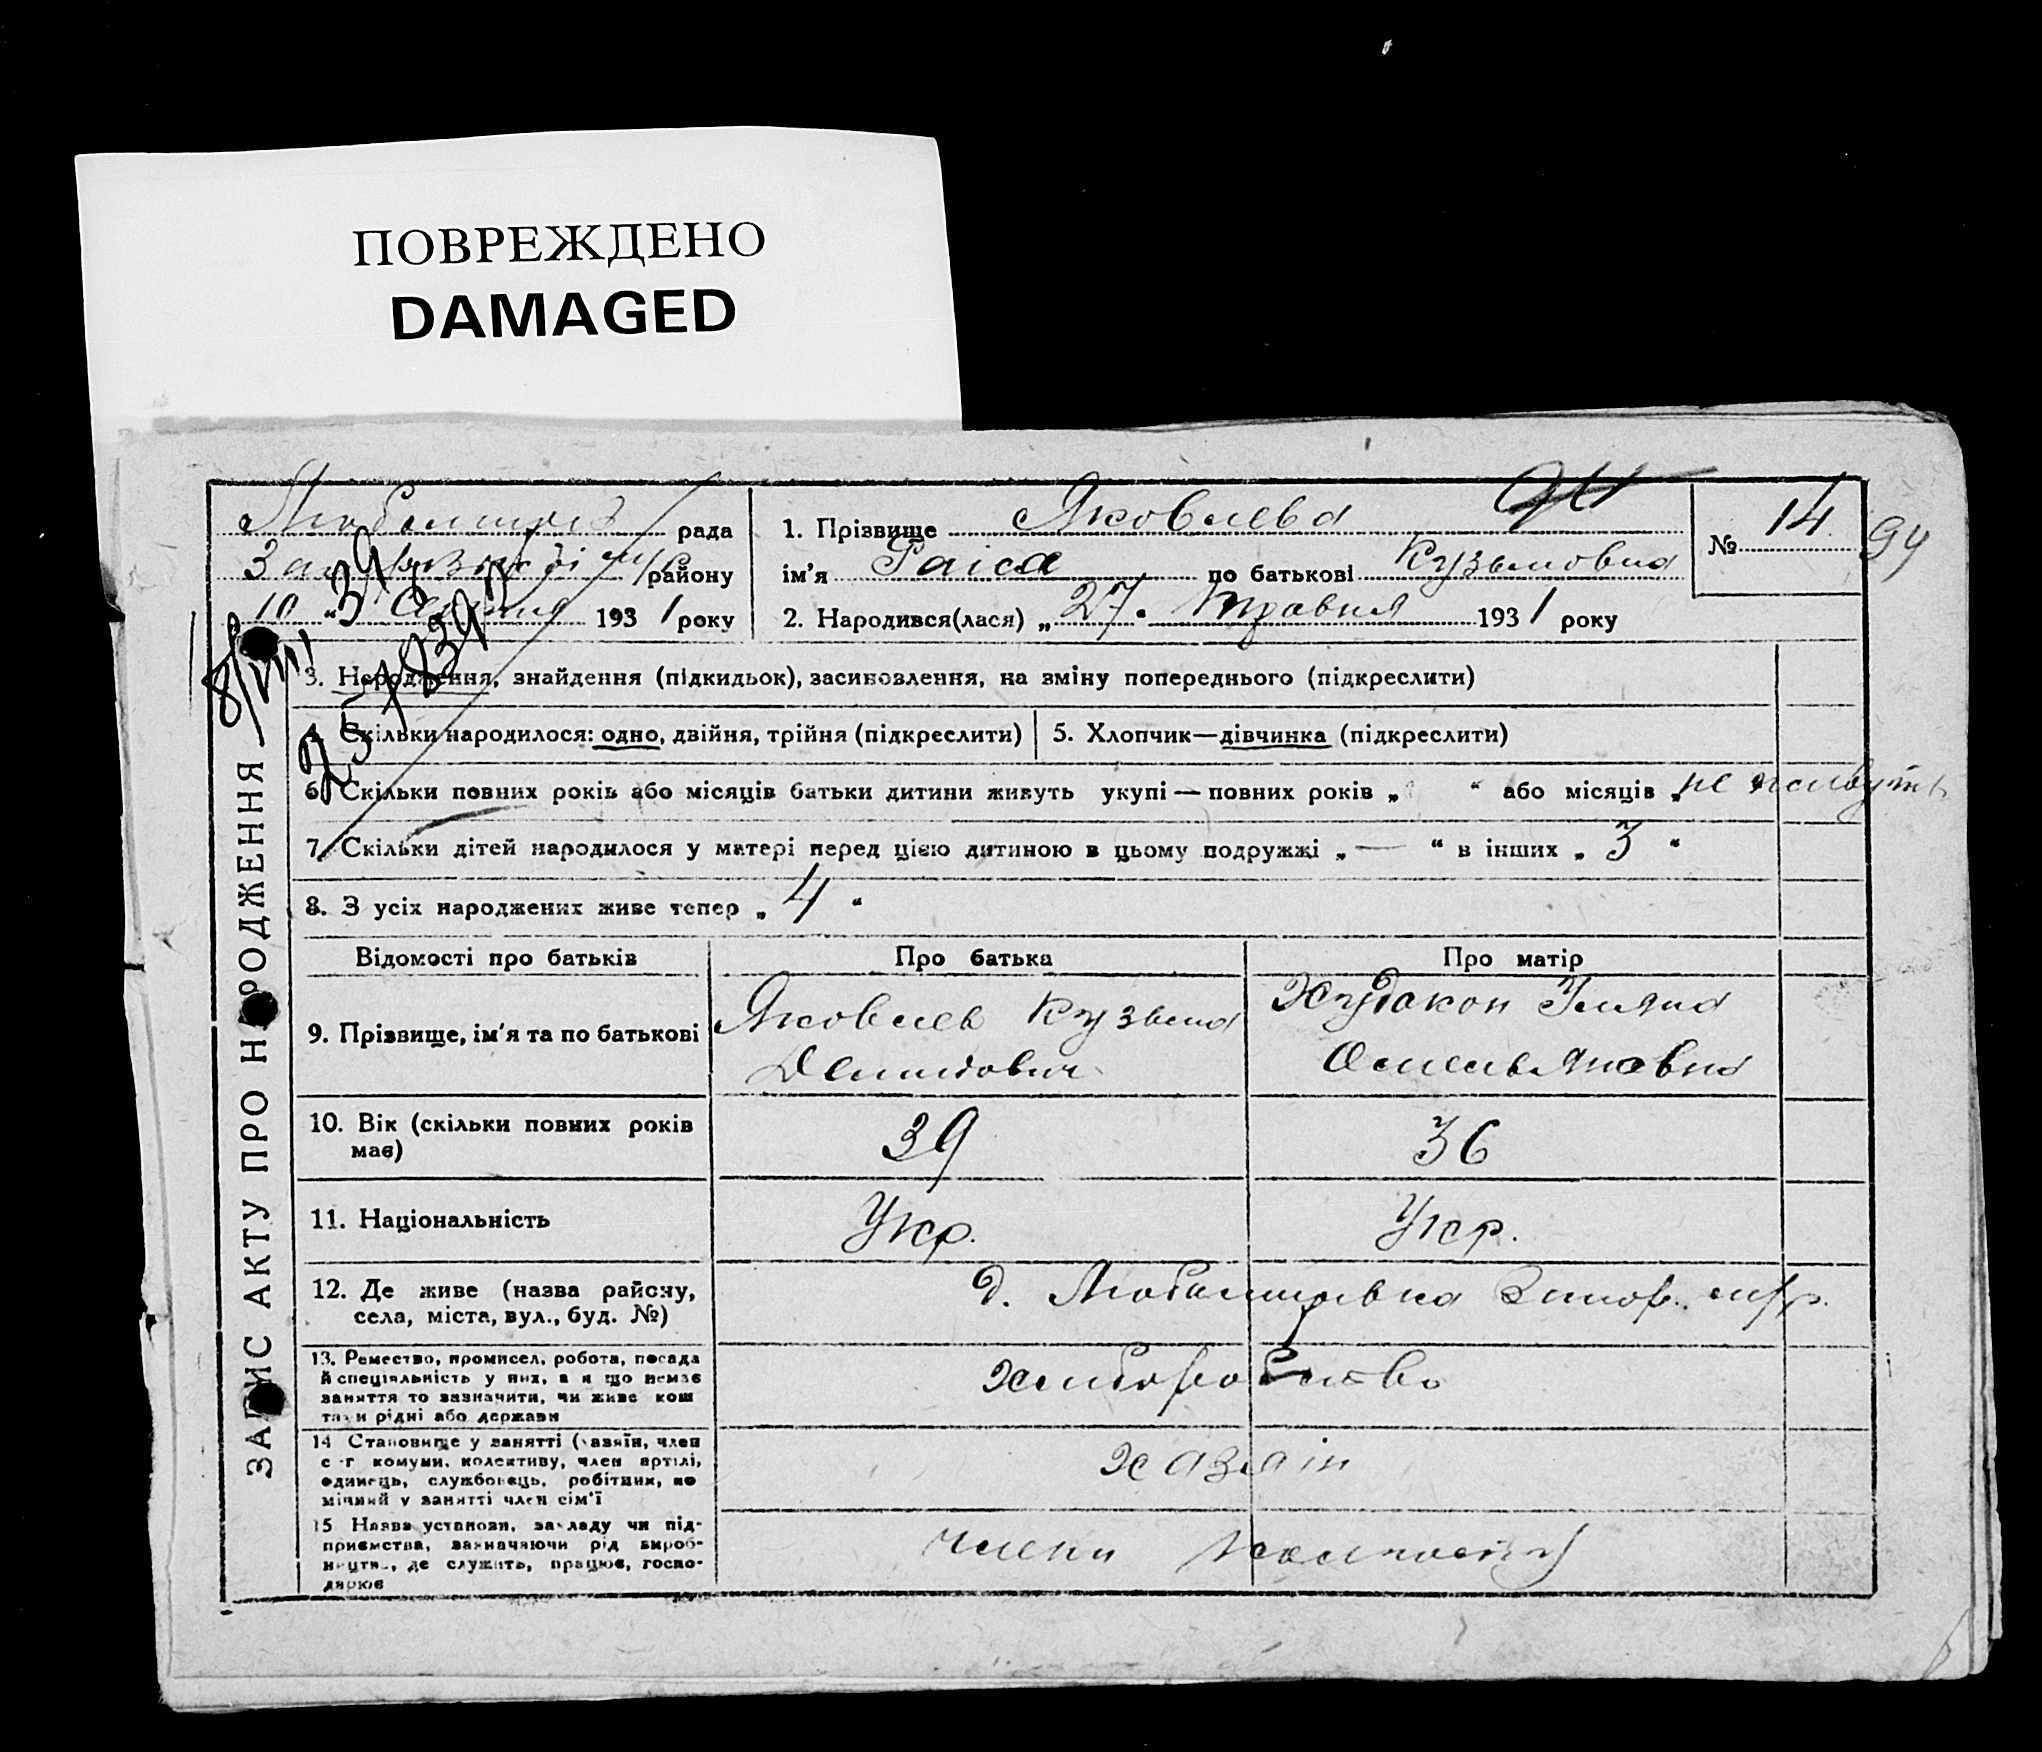 ПОВРЕЖДЕНО
DAMAGED
рада
району
10 193 1 року
1. Прізвище Яковлева
ім'я Раіса по батькові Кузьмовна
2. Народився(лася) „ 27 " травня 193 1 року
№ 14
94
ЗАПИС АКТУ ПРО НАРОДЖЕННЯ
3. Народження, знайдення (підкидьок), засиновлення, на зміну попереднього (підкреслити)
4. Скільки народилося: одно, двійня, трійня (підкреслити)
5. Хлопчик—дівчинка (підкреслити)
6. Скільки повних років або місяців батьки дитини живуть укупі — повних років „ " або місяців „ не живуть
7. Скільки дітей народилося у матері перед цією дитиною в цьому подружжі „ — " в інших „ 3 "
8. З усіх народжених живе тепер „ 4 "
Відомості про батьків
Про батька
Про матір
9. Прізвище, ім'я та по батькові
Яковлев Кузьма
Демидович
Худокон Уляна
Омельяновна
10. Вік (скільки повних років
має)
39
36
11. Національність
Укр.
Укр.
12. Де живе (назва району,
села, міста, вул., буд. №)
13. Ремество, промисел, робота, посада
й спеціяльність у них, а я що немає
заняття то зазначити, чи живе кош
тами рідні або держави
хліборобство
14 Становище у занятті (хазяїн, член
с-г комуни, колективу, член артілі,
одинець, службовець, робітник, по
мічний у занятті член сім'ї
хазяін
15 Назва установи, закладу чи під-
приємства, зазначаючи рід вироб-
ництва, де служить, працює, госпо-
дарює
члени колгоспу